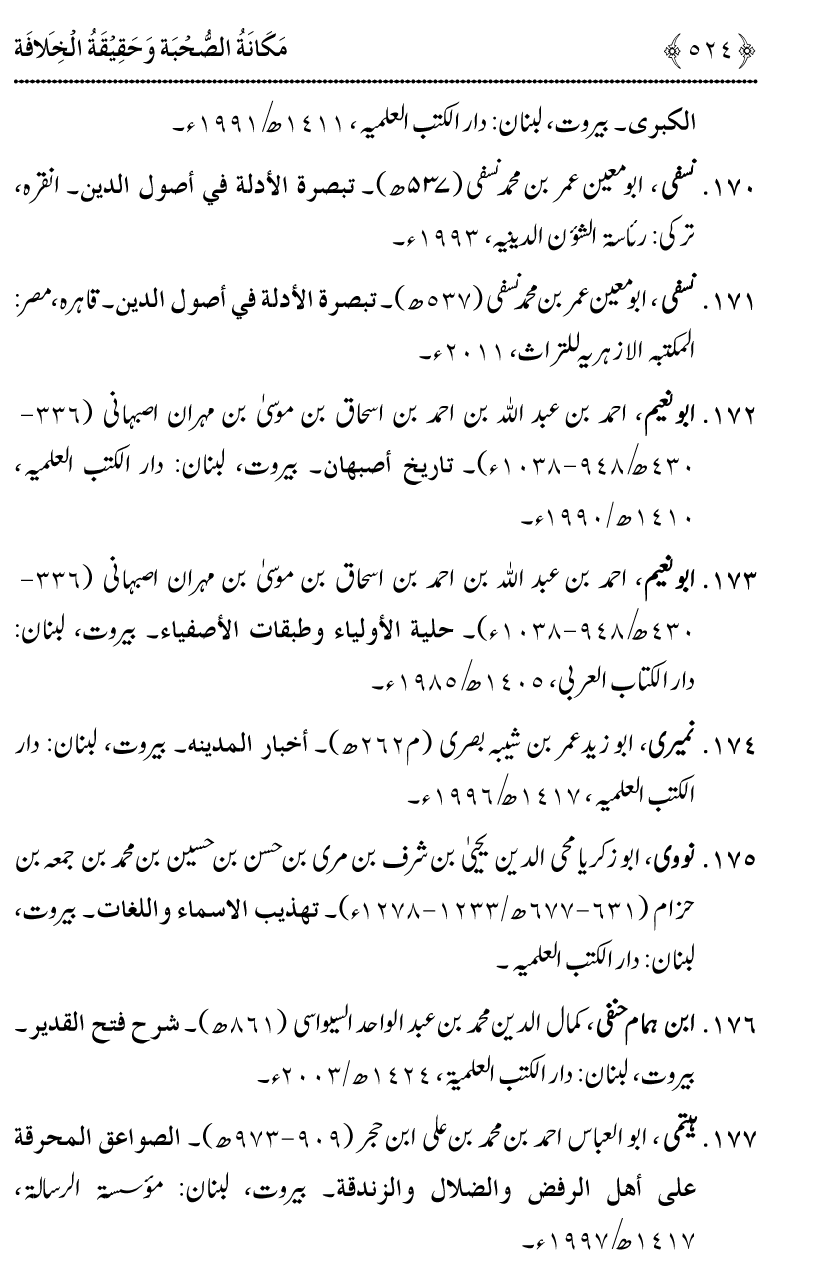 ﴿٥٢٤﴾ مَكَانَةُ الصُّحْبَة وَحَقِيْقَةُ الْخِلَافَة
الكبرى۔ بیروت، لبنان: دار الکتب العلمیہ، ١٤١١ھ/١٩٩١ء۔
١٧٠. نسفی، ابو معین عمر بن محمد نسفی (۵۳۷ھ)۔ تبصرة الأدلة في أصول الدين۔ انقرہ،
ترکی: رئاسة الشؤن الدینیہ، ١٩٩٣ء۔
١٧١. نسفی، ابو معین عمر بن محمد نسفی (٥٣٧ھ)۔ تبصرة الأدلة في أصول الدين۔ قاہرہ، مصر:
المکتبہ الازہریہ للتراث، ٢٠١١ء۔
١٧٢. ابو نعیم، احمد بن عبد اللہ بن احمد بن اسحاق بن موسیٰ بن مہران اصبہانی (٣٣٦-
٤٣٠ھ/٩٤٨-١٠٣٨ء)۔ تاریخ أصبهان۔ بیروت، لبنان: دار الکتب العلمیہ،
١٤١٠ھ/١٩٩٠ء۔
١٧٣. ابو نعیم، احمد بن عبد اللہ بن احمد بن اسحاق بن موسیٰ بن مہران اصبہانی (٣٣٦-
٤٣٠ھ/٩٤٨-١٠٣٨ء)۔ حلية الأولياء وطبقات الأصفياء۔ بیروت، لبنان:
دار الکتاب العربی، ١٤٠٥ھ/١٩٨٥ء۔
١٧٤. نمیری، ابو زید عمر بن شیبہ بصری (م٢٦٢ھ)۔ أخبار المدينه۔ بیروت، لبنان: دار
الکتب العلمیہ، ١٤١٧ھ/١٩٩٦ء۔
١٧٥. نووی، ابو زکریا محی الدین یحییٰ بن شرف بن مری بن حسن بن حسین بن محمد بن جمعہ بن
حزام (٦٣١-٦٧٧ھ/١٢٣٣-١٢٧٨ء)۔ تهذيب الاسماء واللغات۔ بیروت،
لبنان: دار الکتب العلمیہ۔
١٧٦. ابن ہمام حنفی، کمال الدین محمد بن عبد الواحد السیواسی (٨٦١ھ)۔ شرح فتح القدير۔
بیروت، لبنان: دار الکتب العلمیة، ١٤٢٤ھ/٢٠٠٣ء۔
١٧٧. ہیتمی، ابو العباس احمد بن محمد بن علی ابن حجر (٩٠٩-٩٧٣ھ)۔ الصواعق المحرقة
على أهل الرفض والضلال والزندقة۔ بیروت، لبنان: مؤسسة الرسالة،
١٤١٧ھ/١٩٩٧ء۔